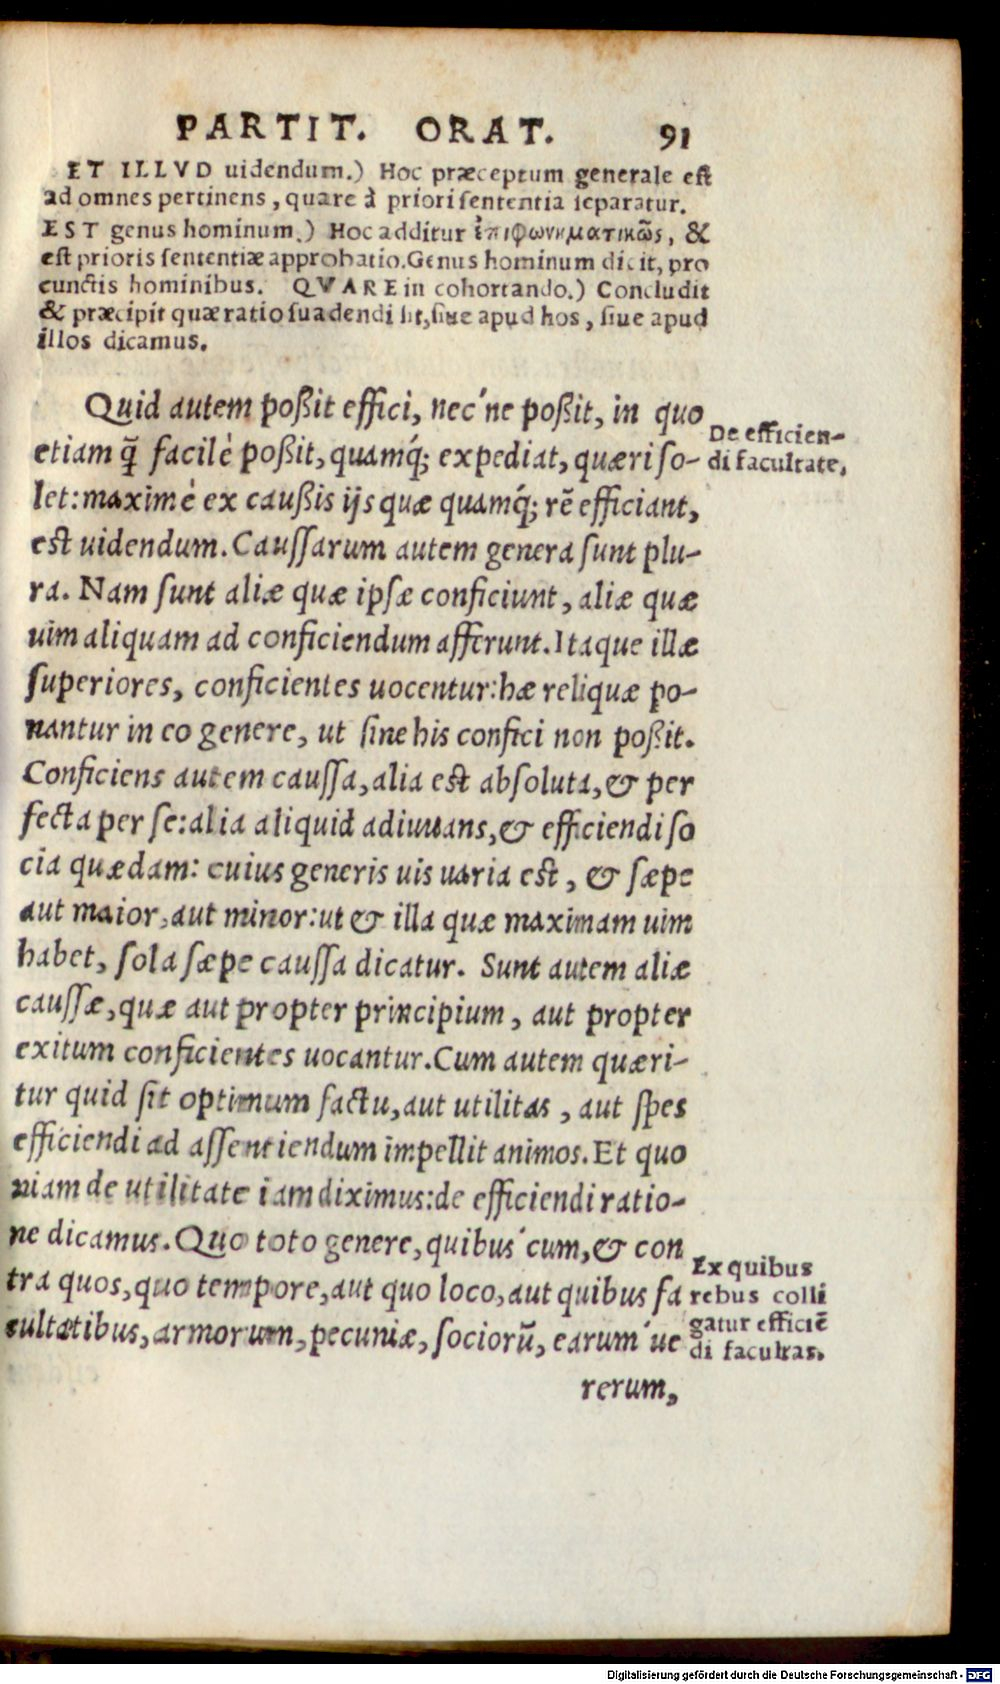 PARTIT. ORAT. 91
ET ILLVD uidendum.) Hoc præceptum generale est
ad omnes pertinens, quare à priori sententia separatur.
EST genus hominum.) Hoc additur ἐπιφωνηματικῶς, &
est prioris sententiæ approbatio. Genus hominum dicit, pro
cunctis hominibus. QVARE in cohortando.) Concludit
& præcipit quæ ratio suadendi sit, siue apud hos, siue apud
illos dicamus.
Quid autem poßit effici, nec'ne poßit, in quo
etiam q̃ facilè poßit, quamq́; expediat, quæri so-
let: maximè ex caußis ijs quæ quamq́; rẽ efficiant,
est uidendum. Caussarum autem genera sunt plu-
ra. Nam sunt aliæ quæ ipsæ conficiunt, aliæ quæ
uim aliquam ad conficiendum afferunt. Itaque illæ
superiores, conficientes uocentur: hæ reliquæ po-
nantur in eo genere, ut sine his confici non poßit.
Conficiens autem caussa, alia est absoluta, & per
fecta per se: alia aliquid adiuuans, & efficiendi so
cia quædam: cuius generis uis uaria est, & sæpe
aut maior, aut minor: ut & illa quæ maximam uim
habet, sola sæpe caussa dicatur. Sunt autem aliæ
caussæ, quæ aut propter principium, aut propter
exitum conficientes uocantur. Cum autem quæri-
tur quid sit optimum factu, aut utilitas, aut spes
efficiendi ad assentiendum impellit animos. Et quo
niam de utilitate iam diximus: de efficiendi ratio-
ne dicamus. Quo toto genere, quibus'cum, & con
tra quos, quo tempore, aut quo loco, aut quibus fa
cultatibus, armorum, pecuniæ, sociorũ, earum'ue
rerum,
De efficien-
di facultate.
Ex quibus
rebus colli
gatur efficiẽ
di facultas.
Digitalisierung gefördert durch die Deutsche Forschungsgemeinschaft - DFG